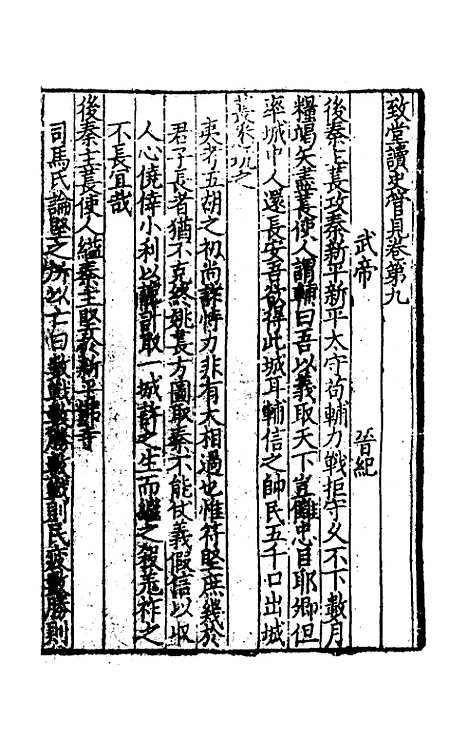 致堂讀史管見卷第九
武帝　晉紀
後秦主萇攻秦新平新平太守苟輔力戰拒守久不下數月
糧竭矢盡萇使人謂輔曰吾以義取天下豈讎忠臣耶卿但
率城中人還長安吾欲得此城耳輔信之帥民五千口出城
萇圍而坑之
夷考五胡之初尚詐恃力非有大相過也惟苻堅庶幾於
君子長者猶不克終姚萇方圖取秦不能仗義假信以收
人心僥倖小利以譎計取一城許之生而繼之殺羌祚之
不長宜哉
後秦主萇使人縊秦主堅於新平佛寺
司馬氏論堅之所以亡曰數戰數勝數戰則民疲數勝則